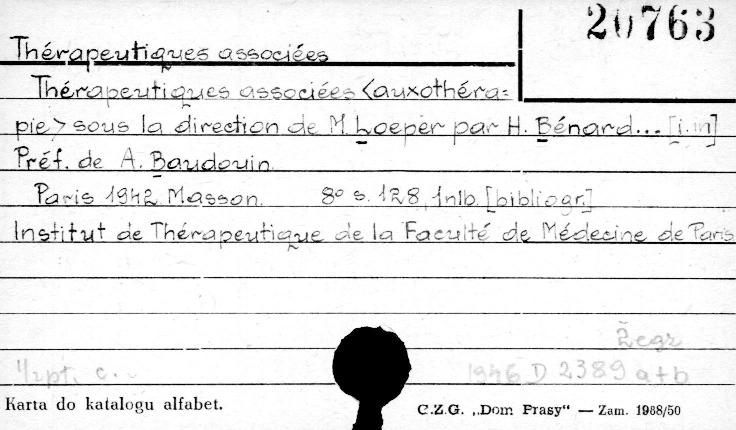 20763
Thérapeutiques associées
Thérapeutiques associées <auxothéra=
pie> sous la direction de M. Loeper par H. Bénard... [i.in]
Préf. de A. Baudouin.
Paris 1942 Masson. 8° s. 128, 1nlb. [bibliogr.]
Institut de Thérapeutique de la Faculté de Médecine de Paris
Żegr
c. 1946 D 2389 a+b
Karta do katalogu alfabet. C.Z.G. „Dom Prasy" — Zam. 1988/50